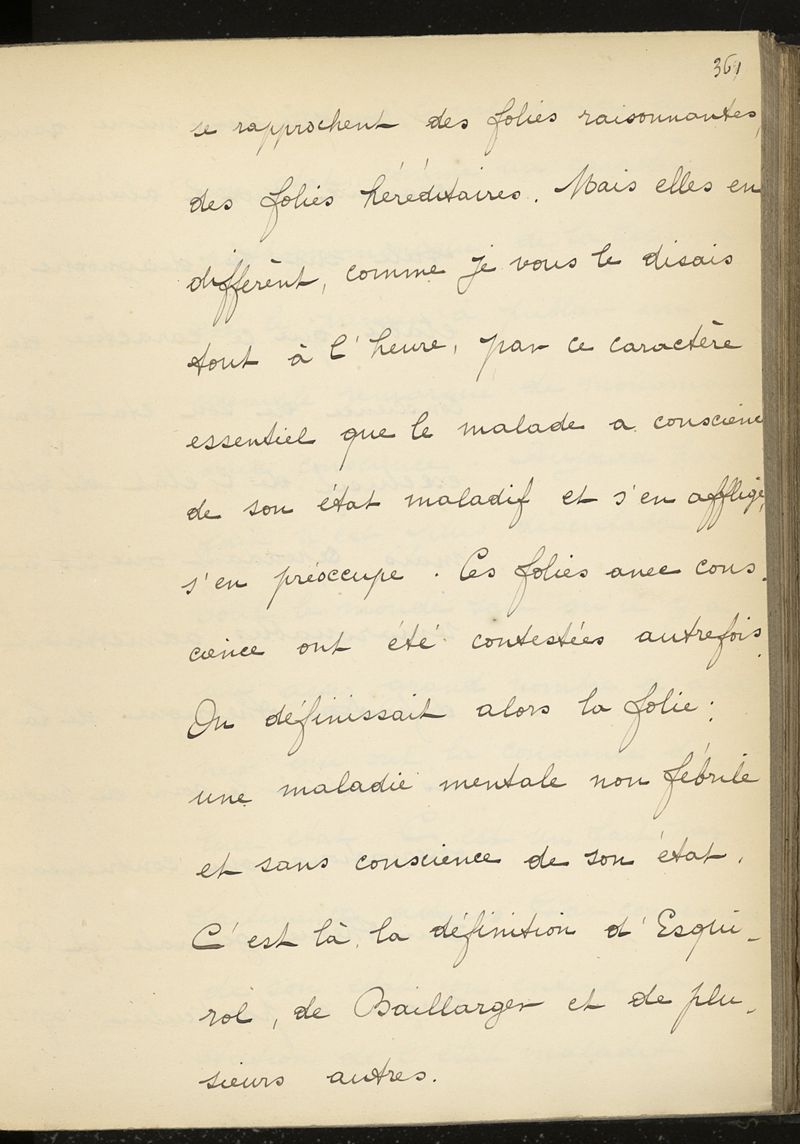 361
se rapprochent des folies raisonnantes,
des folies héréditaires. Mais elles en
diffèrent, comme je vous le disais
tout à l'heure, par ce caractère
essentiel que le malade a conscience
de son état maladif et s'en afflige,
s'en préoccupe. Ces folies avec cons-
cience ont été contestées autrefois.
On définissait alors la folie:
une maladie mentale non fébrile
et sans conscience de son état.
C'est là, la définition d'Esqui-
rol, de Baillarger et de plu-
sieurs autres.